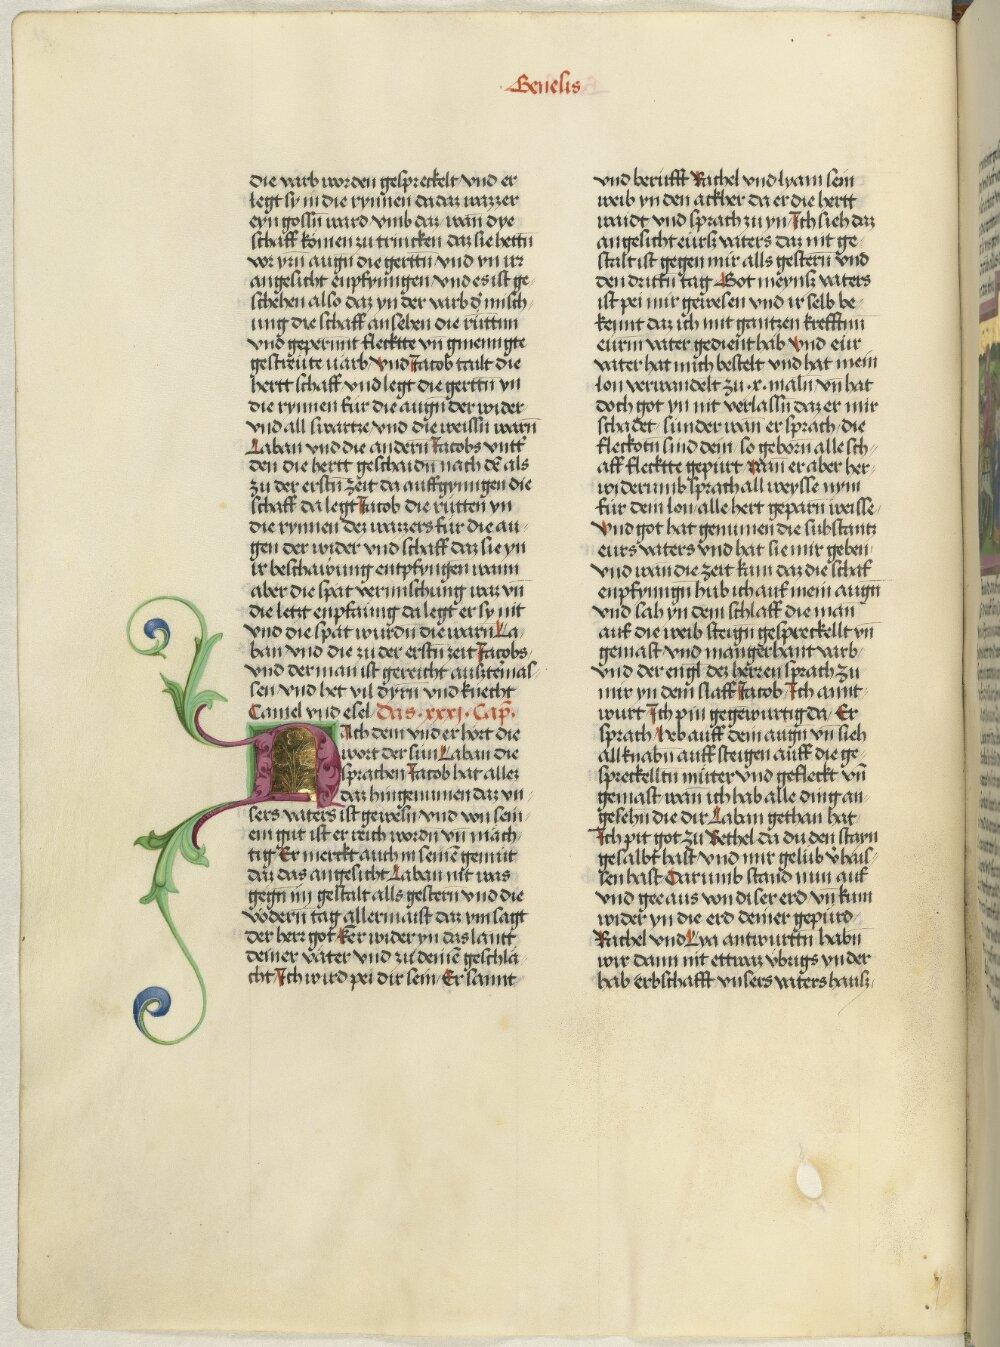 Genesis
die varb worden gespreckelt vnd er
legt sy in die rynnen da daz wazzer
eyn gossn̄ ward vmb daz wān dye
schāff kömen zu trincken daz sie hettn̄
vor yrn augn̄ die gerttn̄ vnd yn irr
angesicht enpfyngen vnd es ist ge-
schehen also daz yn der varb d' misch-
ung die schaff ansehen die rūttnn
vnd geperunt fleckte vn̄ gmennigte
gestreute varb Vnd Jacob tailt die
hertt schaff vnd legt die gerttn̄ yn
die rynnen für die augn̄ der wider
vnd all swartze vnd die weissn̄ warn̄
Laban vnd die andern Jacobs vntt'
den die hertt geschaidn̄ nach dē als
zu der erstn̄ zeit da auffgyningen die
schaff da legt Jacob die rūtten yn
die rynnen dez wazzers für die au-
gen der wider vnd schaff daz sie yn
ir beschawung entpfyngen wann
aber die spat vermischung waz vn̄
die letzt enpfāung da legt er sy nit
vnd die spāt wurdn̄ die warn La-
ban vnd die zu der erstn̄ zeit Jacobs
vnd der man ist gereicht auszte mas-
sen vnd het vil dyrn̄ vnd knecht
Camel vnd esel Das .xxxj. Cap̄.
Ach dem vnd er hört die
wort der sün Laban die
sprachen Jacob hat allez
daz hin genumen daz vn-
sers vaters ist gewesn̄ vnd von sein-
em gut ist er reich wordn̄ vn̄ mäch-
tig Er merckt auch in seinē gemüt
daz das angesicht Laban nit was
gegn im gestalt alls gestern vnd die
vodern tag allermaist daz ym sagt
der herr got ker wider yn das lantt
deiner väter vnd zu deinē geschlā-
cht Ich wird pei dir sein Er santt
vnd berūfft Rachel vnd lyam sein
weib yn den ackher da er die hertt
waidt vnd sprach zu yn Ich sieh daz
angesicht eursz vaters daz nit ge-
stalt ist gegen mir alls gestern vnd
den drittn̄ tag Got meynsz vaters
ist pei mir gewesen vnd ir selb be-
kennt daz ich mit gantzen krefftnn
eurm vater gedient hab Vnd eür
vater hat mich bestelt vnd hat mein
lon verwandelt zu .x. maln vn̄ hat
doch got yn nit verlassn̄ daz er mir
schadet sunder wān er sprach die
fleckotn̄ sind dein so geborn alle sch-
aff fleckte gepürt wan er aber her-
widerumb sprach all weysse nym
für dem lon alle hert geparn weisse
Vnd got hat genumen die substantz
eurs vaters vnd hat sie mir geben
vnd wān die zeit kam daz die schaf
enpfyngn̄ hub ich auf mein augn̄
vnd sah yn dem schlaff die man
auf die weib steign̄ gespreckellt vn̄
gemast vnd mangerhant varb
vnd der engl dez herren sprach zu
mir yn dem slaff Jacob Ich antt-
wurt Ich pin gegēwurtig da Er
sprach heb auff dem augn vn̄ sieh
all knabn̄ auff steigen auff die ge-
spreckelltn̄ müter vnd gefleckt vn̄
gemast wān ich hab alle ding an-
gesehn̄ die dir Laban gethan hat
Ich pit got zu Bethel da du den stayn
gesalbt hast vnd mir gelüb v'hais-
sen hast Darumb stand nun auf
vnd gee aus von diser erd vn̄ kum
wider yn die erd deiner gepürd
Rachel vnd Lya antwurttn̄ habn̄
wir dann nit ettwaz vbrigs vn der
hab erbschafft vnsers vaters hausz